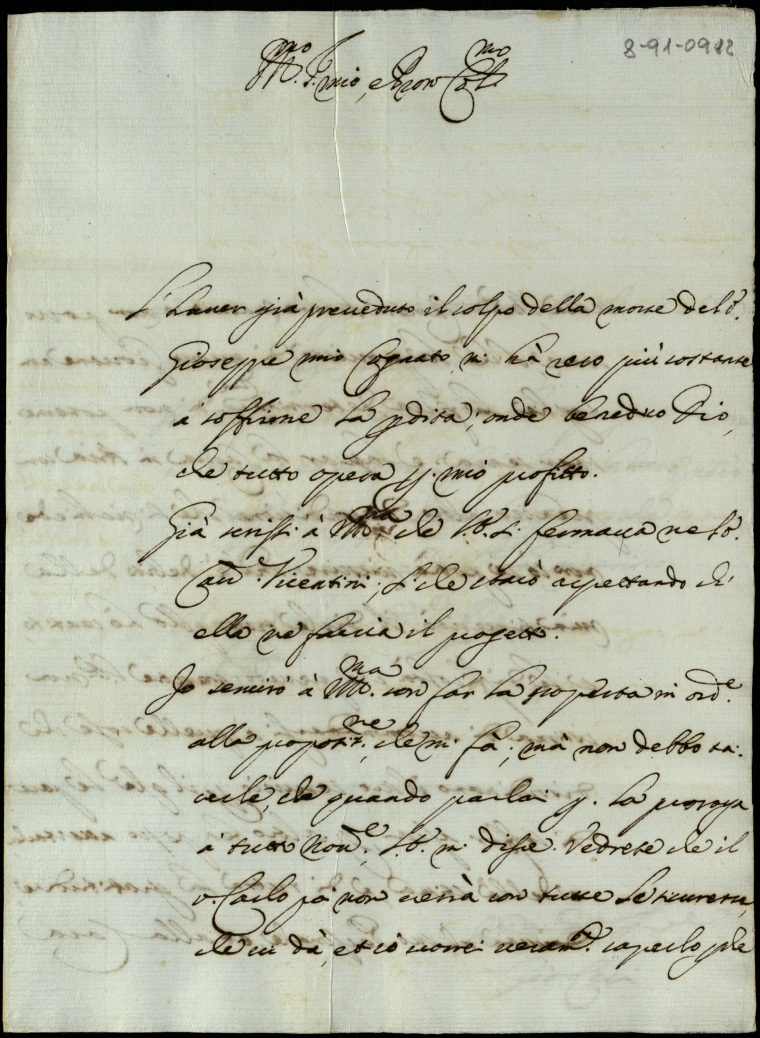 8-91-0912
M.mo S. mio, e Pron Col.mo
L'hauer già preueduto il colpo della morte del S.r
Gioseppe mio Cognato mi hà reso più costante
à soffrirne la pdita, onde benedico Dio,
che tutto opera p. mio profitto.
Già scrissi à che si fermaua
Vicentini; che starò aspettando ch'
ella ne faccia il progetto.
Io seruirò à con far la scoperta in ord.e
alla propositne, che mi fà; mà non debbo ta-
cerle, che quando parlai p. la proroga
à tutto Nou.e, mi disse. Vedrete che il
Carlo poi non uerrà con tutte le sicurezze,
che ui dà, et io uorrei saperlo pche